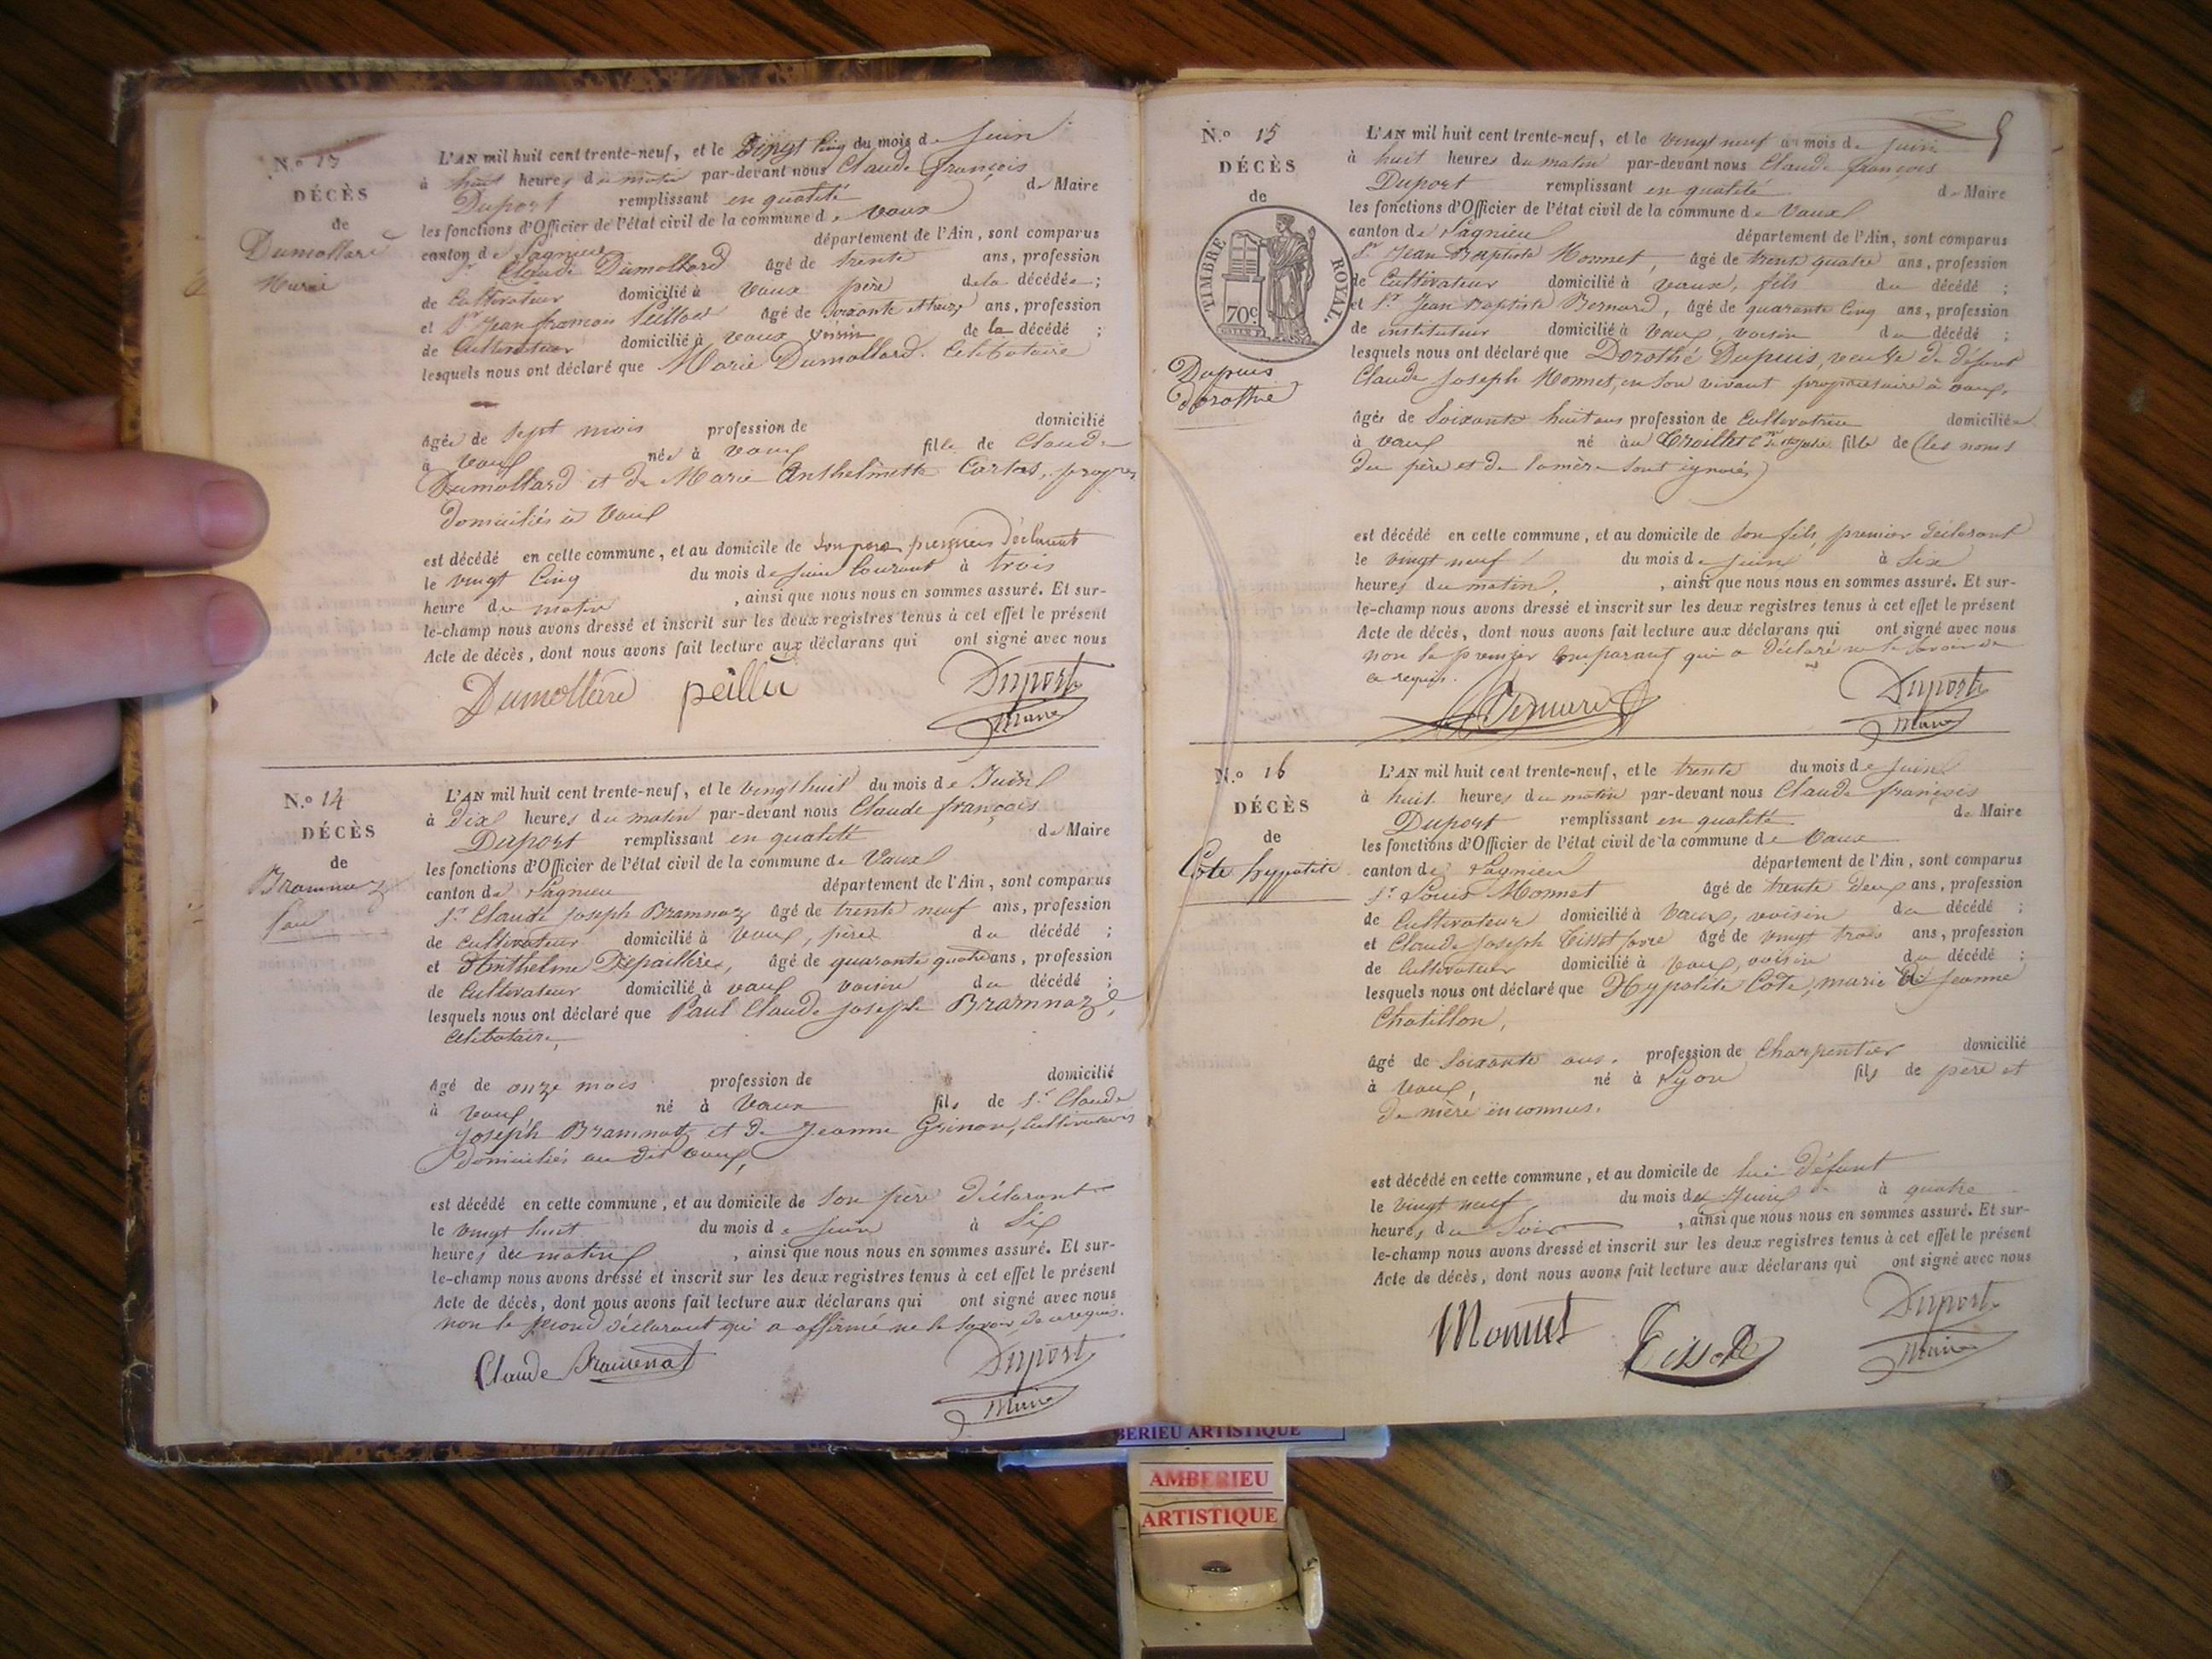 N.o 13
DÉCÈS
de
Dumollard
Marie
L'AN mil huit cent trente-neuf, et le vingt cinq du mois de juin
à huit heures du matin par-devant nous Claude françois
Duport remplissant en qualité de Maire
les fonctions d'Officier de l'état civil de la commune de vaux
canton de Lagnieu département de l'Ain, sont comparus
Sr Claude Dumollard âgé de trente ans, profession
de Cultivateur domicilié à vaux père de la décédée ;
et Sr Jean françois âgé de soixante ans, profession
de Cultivateur domicilié à vaux voisin de la décédé ;
lesquels nous ont déclaré que Marie Dumollard. Celibataire
âgée de sept mois profession de domicilié
à vaux née à vaux fille de Claude
Dumollard et de Marie Anthelmette
domiciliés à vaux
est décédé en cette commune, et au domicile de son père premier déclarant
le vingt cinq du mois de juin courant à trois
heure du matin , ainsi que nous nous en sommes assuré. Et sur-
le-champ nous avons dressé et inscrit sur les deux registres tenus à cet effet le présent
Acte de décès, dont nous avons fait lecture aux déclarans qui ont signé avec nous
Duport
Maire
N.o 14
DÉCÈS
de
L'AN mil huit cent trente-neuf, et le vingt huit du mois de Juin
à dix heures du matin par-devant nous Claude françois
Duport remplissant en qualité de Maire
les fonctions d'Officier de l'état civil de la commune de Vaux
canton de Lagnieu département de l'Ain, sont comparus
Sr Claude joseph Bramnaz âgé de trente neuf ans, profession
de cultivateur domicilié à vaux, père du décédé ;
et Anthelme Depaillère, âgé de quarante quatre ans, profession
de Cultivateur domicilié à vaux voisin du décédé ;
lesquels nous ont déclaré que Paul Claude joseph Bramnaz,
Celibataire,
âgé de onze mois profession de domicilié
à vaux, né à Vaux fils de Sr Claude
joseph Bramnaz et de Jeanne Grinon, Cultivateurs
domiciliés au dit vaux,
est décédé en cette commune, et au domicile de son père déclarant
le vingt huit du mois de juin à Six
heures du matin , ainsi que nous nous en sommes assuré. Et sur-
le-champ nous avons dressé et inscrit sur les deux registres tenus à cet effet le présent
Acte de décès, dont nous avons fait lecture aux déclarans qui ont signé avec nous
non le second déclarant qui a affirmé ne le savoir de ce requis.
Claude
Duport
Maire
N.o 15
DÉCÈS
de
TIMBRE ROYAL.
70c
Dupuis
dorothée
L'AN mil huit cent trente-neuf, et le vingt neuf du mois de juin
à huit heures du matin par-devant nous Claude françois
Duport remplissant en qualité de Maire
les fonctions d'Officier de l'état civil de la commune de Vaux
canton de Lagnieu département de l'Ain, sont comparus
Sr Jean Baptiste Monnet, âgé de trente quatre ans, profession
de Cultivateur domicilié à vaux, fils du décédé ;
et Sr Jean Baptiste Bernard, âgé de quarante cinq ans, profession
de instituteur domicilié à Vaux, voisin du décédé ;
lesquels nous ont déclaré que Dorothé Dupuis, veuve de défunt
Claude joseph Monnet, en son vivant propriétaire à vaux,
âgée de Soixante huit ans profession de Cultivatrice domiciliée
à vaux né au fille de (les noms
du père et de la mère sont ignorés)
est décédé en cette commune, et au domicile de son fils, premier déclarant
le vingt neuf du mois de juin à Six
heures du matin, , ainsi que nous nous en sommes assuré. Et sur-
le-champ nous avons dressé et inscrit sur les deux registres tenus à cet effet le présent
Acte de décès, dont nous avons fait lecture aux déclarans qui ont signé avec nous
non le premier comparant qui a déclaré ne le savoir de
ce requis.
Bernard
Duport
Maire
N.o 16
DÉCÈS
de
Cote hyppolite
L'AN mil huit cent trente-neuf, et le trente du mois de juin
à huit heures du matin par-devant nous Claude françois
Duport remplissant en qualité de Maire
les fonctions d'Officier de l'état civil de la commune de Vaux
canton de Lagnieu département de l'Ain, sont comparus
Sr Louis Monnet âgé de trente deux ans, profession
de Cultivateur domicilié à Vaux, voisin du décédé ;
et Claude joseph Tissot favre âgé de vingt trois ans, profession
de Cultivateur domicilié à Vaux, voisin du décédé ;
lesquels nous ont déclaré que Hypolite Cote, marié à Jeanne
Chatillon,
âgé de Soixante ans. profession de Charpentier domicilié
à Vaux, né à Lyon fils de père et
de mère inconnus.
est décédé en cette commune, et au domicile de lui défunt
le vingt neuf du mois de Juin à quatre
heures du Soir , ainsi que nous nous en sommes assuré. Et sur-
le-champ nous avons dressé et inscrit sur les deux registres tenus à cet effet le présent
Acte de décès, dont nous avons fait lecture aux déclarans qui ont signé avec nous
Monnet
Duport
Maire
BERIEU ARTISTIQUE
AMBERIEU
ARTISTIQUE